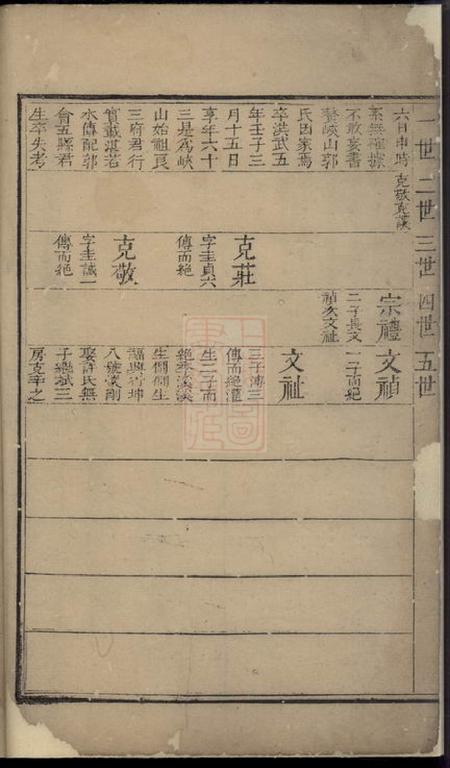 一世 二世 三世 四世 五世
六日申時
克敬克莊
系無確據
不敢妄書
娶峽山郭
氏因家焉
卒洪武五
年壬子三
月十五日
享年六十
三是為峽
山始祖良
三府君行
實載湛若
水傳配郭
會五縣君
生卒失考
克莊
字圭貞六
傳而絕
克敬
字圭誠一
傳而絕
宗禮
二子長文
禎次文祉
文禎
一子而絕
文祉
三子傳三
傳而絕
生二子而
生侗侗生
八號
娶許氏無
子繼弒三
房克辛之